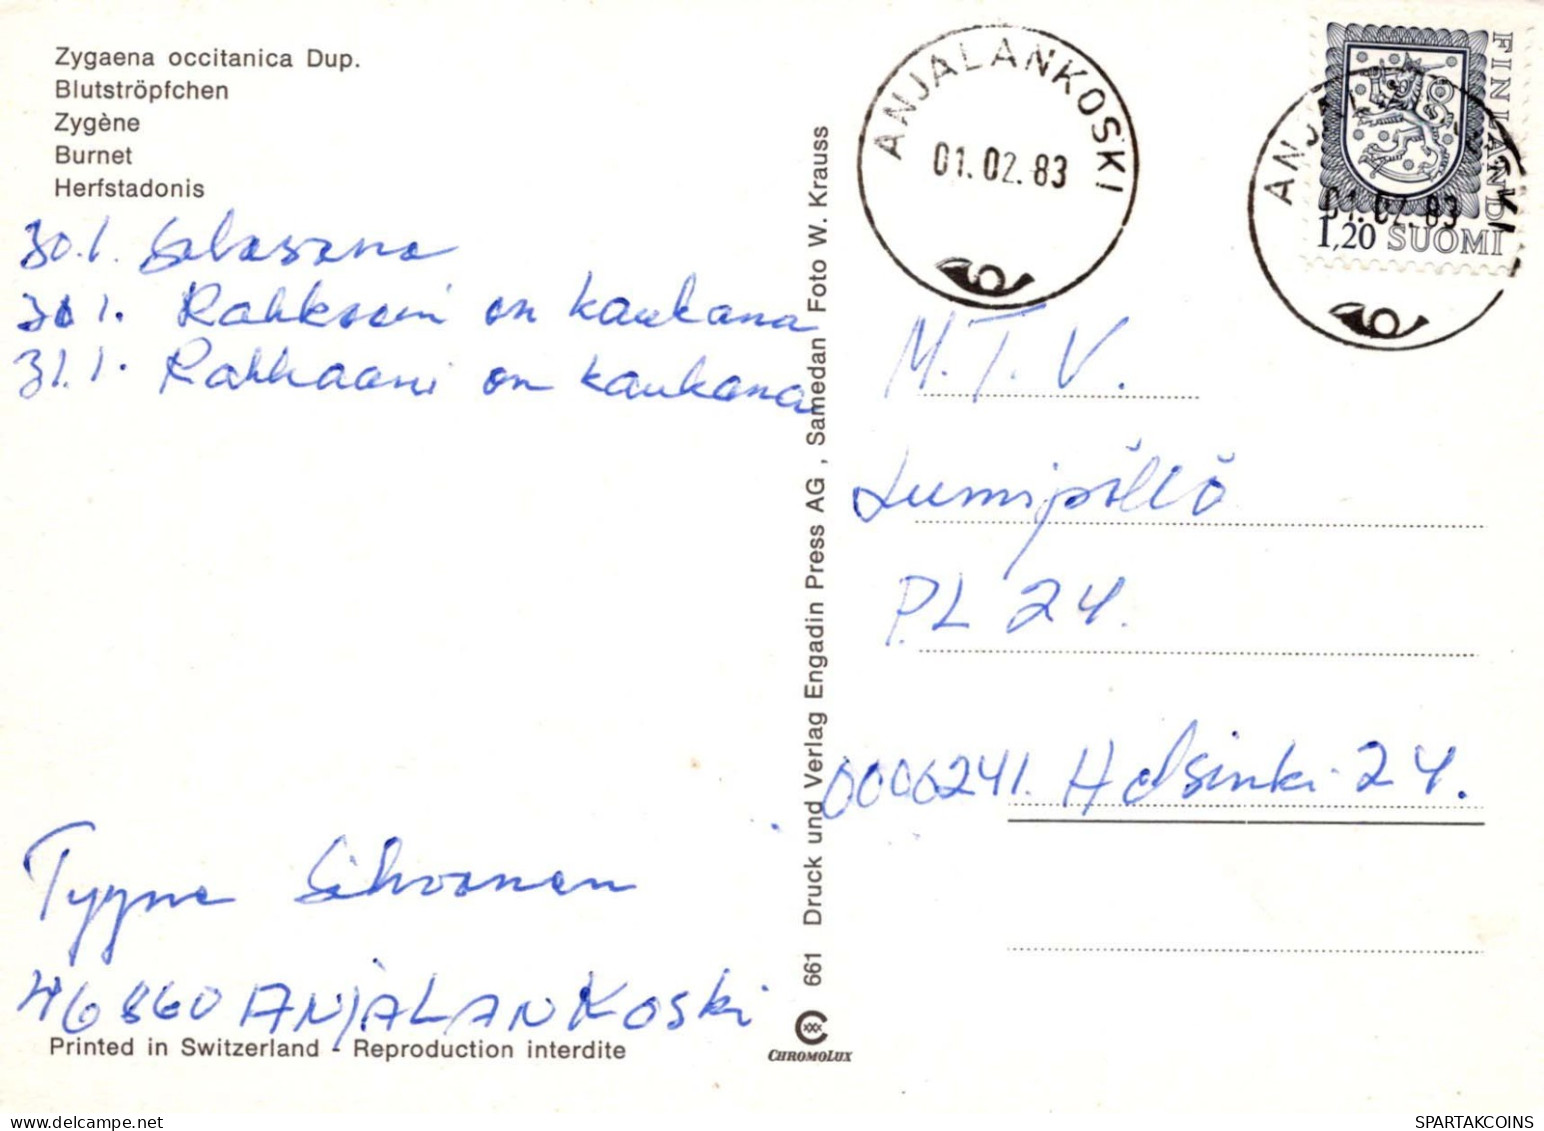 Zygaena occitanica Dup.
Blutströpfchen
Zygène
Burnet
Herfstadonis
30.1. Salasana
31 1. Rakkeein on kaukana
31.1. Rakkaani on kaukana
Tyyne Sihvonen
46860 ANJALANKOSKi
Printed in Switzerland - Reproduction interdite
661 Druck und Verlag Engadin Press AG, Samedan Foto W. Krauss
CHROMOLUX
ANJALANKOSKI
01.02.83
ANJALANKOSKI
01.02.83
FINLAND
1,20 SUOMI
M.T.V.
Lumipöllö
PL 24.
0006241. Helsinki 24.
SPARTAKCOINS